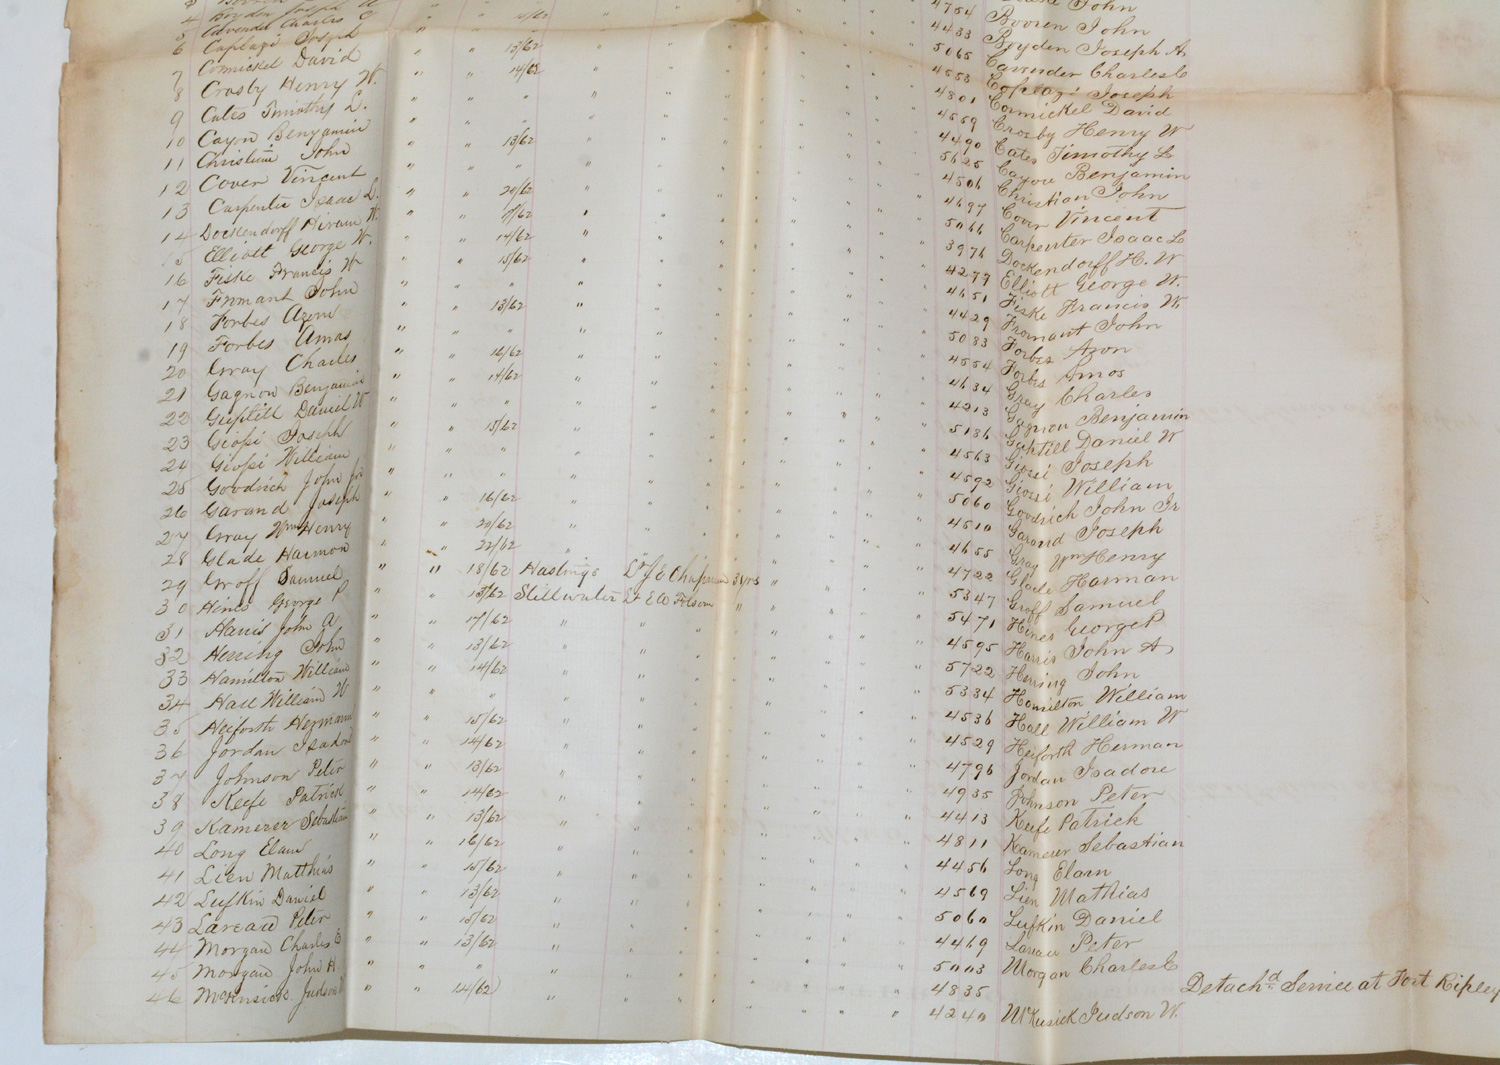 6 Caplazi Joseph " " 13/62 " " " " " 5065 Boyden Joseph A.
7 Cormickel David " " 14/62 " " " " " 4553 Cavender Charles E
8 Crosby Henry W. " " " " " " " " 4801 Caplazi Joseph
9 Cates Timothy L. " " " " " " " " 4559 Cormickel David
10 Cayou Benjamin " " 13/62 " " " " " 4490 Crosby Henry W
11 Christian John " " " " " " " " 5625 Cates Timothy L
12 Cover Vincent " " 20/62 " " " " " 4506 Cayou Benjamin
13 Carpenter Isaac L. " " " " " " " 4697 Christian John
14 Dockendorff Hiram W. " " 14/62 " " " " " 5066 Cover Vincent
15 Elliott George W. " " 15/62 " " " " " 3976 Carpenter Isaac L
16 Fiske Francis W " " " " " " " " 4277 Dockendorff H. W
17 Fromant John " " 13/62 " " " " " 4651 Elliott George W.
18 Forbes Azom " " " " " " " 4429 Fiske Francis W.
19 Forbes Amos " " 16/62 " " " " " 5083 Fromant John
20 Gray Charles " " 14/62 " " " " " 4554 Forbes Azom
21 Gagnon Benjamin " " " " " " " " 4634 Forbes Amos
22 Guptill Daniel W " " 15/62 " " " " " 4213 Gray Charles
23 Giossi Joseph " " " " " " " " 5186 Gagnon Benjamin
24 Giossi William " " " " " " " " 4563 Guptill Daniel W
25 Goodrich John Jr " " " " " " " " 4592 Giossi Joseph
26 Garand Joseph " " 16/62 " " " " " 5060 Giossi William
27 Gray Wm Henry " " 20/62 " " " " " 4510 Goodrich John Jr
28 Glade Harmon " " 22/62 " " " " 4655 Garand Joseph
29 Groff Samuel " " 18/62 Hastings Lt J E Chapman 3 yrs " " " " 4722 Gray Wm Henry
30 Hines George P " " 13/62 Stillwater Lt E A Folsom " " " " 5347 Glade Harman
31 Harris John A " " 17/62 " " " " " 5471 Groff Samuel
32 Herring John " " 13/62 " " " " " 4595 Hines George P
33 Hamilton William " " 14/62 " " " " " 5722 Harris John A
34 Hall William W " " " " " " " " 5334 Herring John
35 Heiforth Hermann " " 15/62 " " " " " 4536 Hamilton William
36 Jordan Isadore " " 14/62 " " " " " 4529 Hall William W
37 Johnson Peter " " 13/62 " " " " " 4796 Heiforth Herman
38 Keefe Patrick " " 14/62 " " " " " 4935 Jordan Isadore
39 Kamerer Sebastian " " 13/62 " " " " " 4413 Johnson Peter
40 Long Elam " " 16/62 " " " " " 4811 Keefe Patrick
41 Lien Matthias " " 15/62 " " " " " 4456 Kamerer Sebastian
42 Lufkin Daniel " " 13/62 " " " " " 4569 Long Elam
43 Lareau Peter " " 15/62 " " " " " 5060 Lien Mathias
44 Morgan Charles E " " 13/62 " " " " " 4469 Lufkin Daniel
45 Morgan John H. " " " " " " " " 5003 Lareau Peter
46 McKusick Judson " " 14/62 " " " " " 4835 Morgan Charles E
Detachd Service at Fort Ripley
4240 McKusick Judson W.